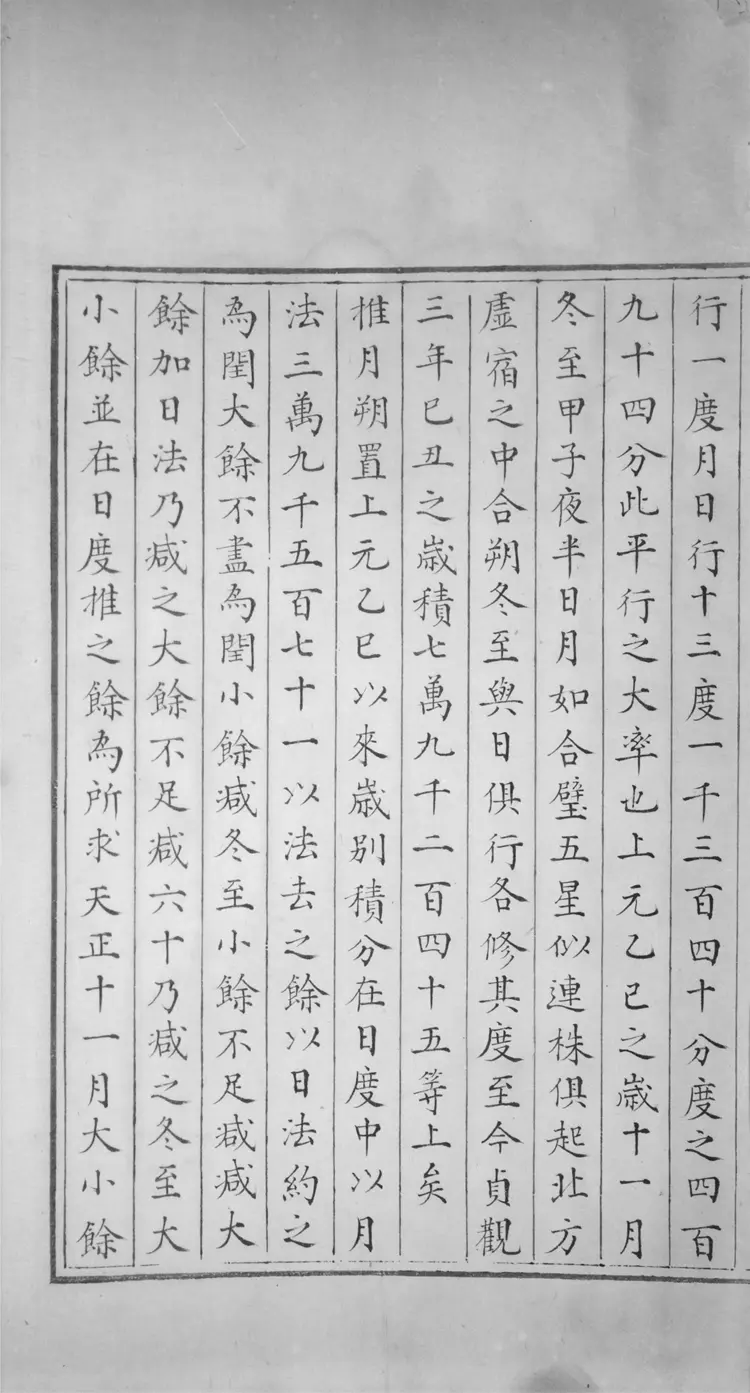 行一度月日行十三度一千三百四十分度之四百
九十四分此平行之大率也上元乙巳之歲十一月
冬至甲子夜半日月如合璧五星似連株俱起北方
虛宿之中合朔冬至與日俱行各修其度至今貞觀
三年巳丑之歲積七萬九千二百四十五等上矣
推月朔置上元乙巳以來歲別積分在日度中以月
法三萬九千五百七十一以法去之餘以日法約之
為閏大餘不盡為閏小餘減冬至小餘不足減減大
餘加日法乃減之大餘不足減六十乃減之冬至大
小餘並在日度推之餘為所求天正十一月大小餘